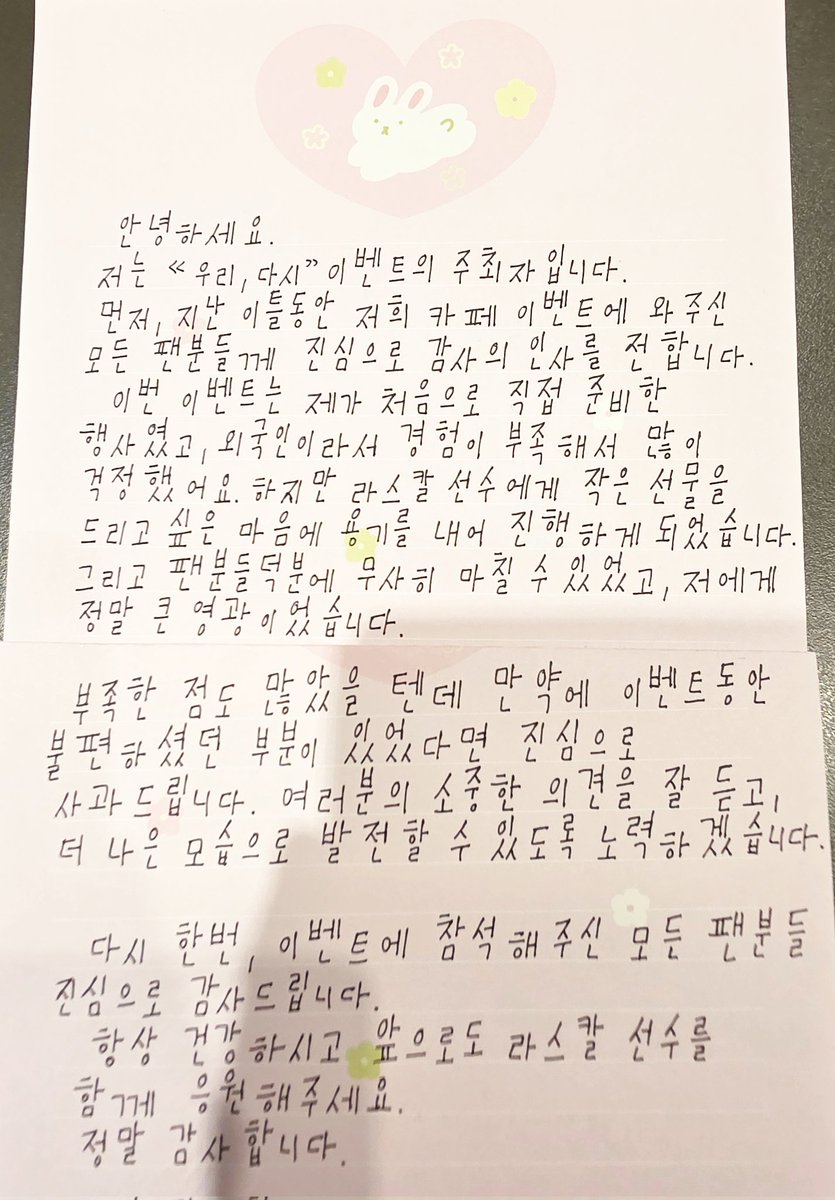 안녕하세요.
저는 “우리, 다시” 이벤트의 주최자입니다.
먼저, 지난 이틀동안 저희 카페 이벤트에 와주신
모든 팬분들께 진심으로 감사의 인사를 전합니다.
이번 이벤트는 제가 처음으로 직접 준비한
행사였고, 외국인이라서 경험이 부족해서 많이
걱정했어요. 하지만 라스칼 선수에게 작은 선물을
드리고 싶은 마음에 용기를 내어 진행하게 되었습니다.
그리고 팬분들덕분에 무사히 마칠 수 있었고, 저에게
정말 큰 영광이었습니다.
부족한 점도 많았을 텐데 만약에 이벤트동안
불편하셨던 부분이 있었다면 진심으로
사과드립니다. 여러분의 소중한 의견을 잘 듣고,
더 나은 모습으로 발전할 수 있도록 노력하겠습니다.
다시 한번, 이벤트에 참석해주신 모든 팬분들
진심으로 감사드립니다.
항상 건강하시고 앞으로도 라스칼 선수를
함께 응원해주세요.
정말 감사합니다.